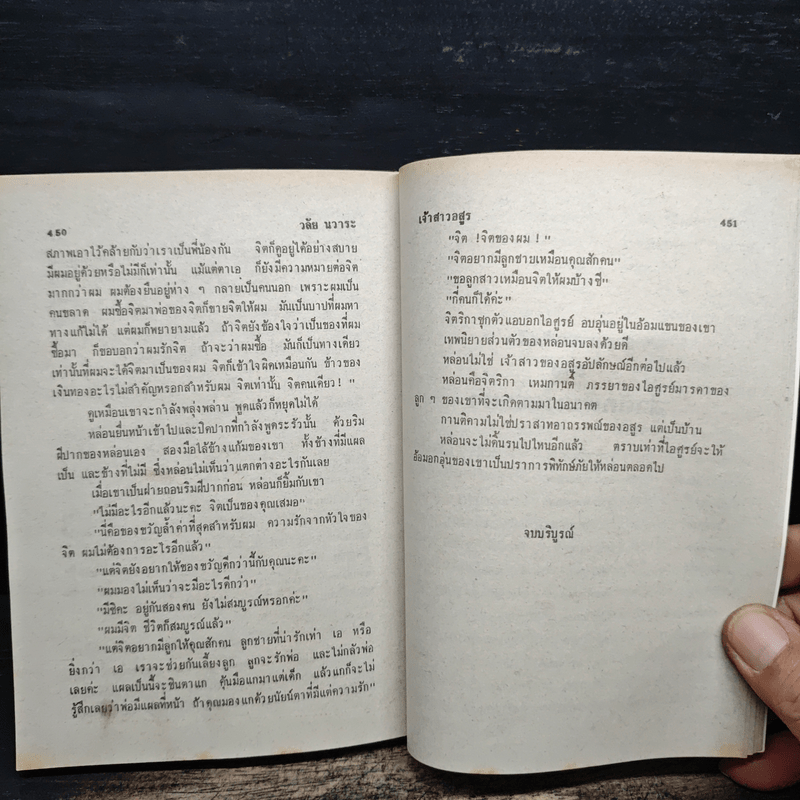 450 วลัย นวาระ
สภาพเอาไว้คล้ายกับว่าเราเป็นพี่น้องกัน จิตก็ดูอยู่ได้อย่างสบาย
มีผมอยู่ด้วยหรือไม่มีก็เท่านั้น แม้แต่ตาเอ ก็ยังมีความหมายต่อจิต
มากกว่าผม ผมต้องยืนอยู่ห่าง ๆ กลายเป็นคนนอก เพราะผมเป็น
คนขลาด ผมซื้อจิตมาพ่อของจิตก็ขายจิตให้ผม มันเป็นบาปที่ผมหา
ทางแก้ไม่ได้ แต่ผมก็พยายามแล้ว ถ้าจิตยังข้องใจว่าเป็นของที่ผม
ซื้อมา ก็ขอบอกว่าผมรักจิต ถ้าจะว่าผมซื้อ มันก็เป็นทางเดียว
เท่านั้นที่ผมจะได้จิตมาเป็นของผม จิตก็เข้าใจผิดเหมือนกัน ข้าวของ
เงินทองอะไรไม่สำคัญหรอกสำหรับผม จิตเท่านั้น จิตคนเดียว ! "
ดูเหมือนเขาจะกำลังพลุ่งพล่าน พูดแล้วก็หยุดไม่ได้
หล่อนยื่นหน้าเข้าไปและปิดปากที่กำลังพูดระรัวนั้น ด้วยริม
ฝีปากของหล่อนเอง สองมือไล้ข้างแก้มของเขา ทั้งข้างที่มีแผล
เป็น และข้างที่ไม่มี ซึ่งหล่อนไม่เห็นว่าแตกต่างอะไรกันเลย
เมื่อเขาเป็นฝ่ายถอนริมฝีปากก่อน หล่อนก็ยิ้มกับเขา
"ไม่มีอะไรอีกแล้วนะคะ จิตเป็นของคุณเสมอ"
"นี่คือของขวัญล้ำค่าที่สุดสำหรับผม ความรักจากหัวใจของ
จิต ผมไม่ต้องการอะไรอีกแล้ว"
"แต่จิตยังอยากให้ของขวัญดีกว่านี้กับคุณนะคะ"
"ผมมองไม่เห็นว่าจะมีอะไรดีกว่า"
"มีซีคะ อยู่กันสองคน ยังไม่สมบูรณ์หรอกค่ะ"
"ผมมีจิต ชีวิตก็สมบูรณ์แล้ว"
"แต่จิตอยากมีลูกให้คุณสักคน ลูกชายที่น่ารักเท่า เอ หรือ
ยิ่งกว่า เอ เราจะช่วยกันเลี้ยงลูก ลูกจะรักพ่อ และไม่กลัวพ่อ
เลยค่ะ แผลเป็นนี้จะชินตาแก คุ้นมือแกมาแต่เด็ก แล้วแกก็จะไม่
รู้สึกเลยว่าพ่อมีแผลที่หน้า ถ้าคุณมองแกด้วยนัยน์ตาที่มีแต่ความรัก"
เจ้าสาวอสูร 451
"จิต ! จิตของผม ! "
"จิตอยากมีลูกชายเหมือนคุณสักคน"
"ขอลูกสาวเหมือนจิตให้ผมบ้างซี"
"กี่คนก็ได้ค่ะ"
จิตริกาซุกตัวแอบอกไอศูรย์ อบอุ่นอยู่ในอ้อมแขนของเขา
เทพนิยายส่วนตัวของหล่อนจบลงด้วยดี
หล่อนไม่ใช่ เจ้าสาวของอสูรอัปลักษณ์อีกต่อไปแล้ว
หล่อนคือจิตริกา เหมกานต์ ภรรยาของไอศูรย์มารดาของ
ลูก ๆ ของเขาที่จะเกิดตามมาในอนาคต
กานติคามไม่ใช่ปราสาทอาถรรพณ์ของอสูร แต่เป็นบ้าน
หล่อนจะไม่ดิ้นรนไปไหนอีกแล้ว ตราบเท่าที่ไอศูรย์จะให้
อ้อมอกอุ่นของเขาเป็นปราการพิทักษ์ภัยให้หล่อนตลอดไป
จบบริบูรณ์